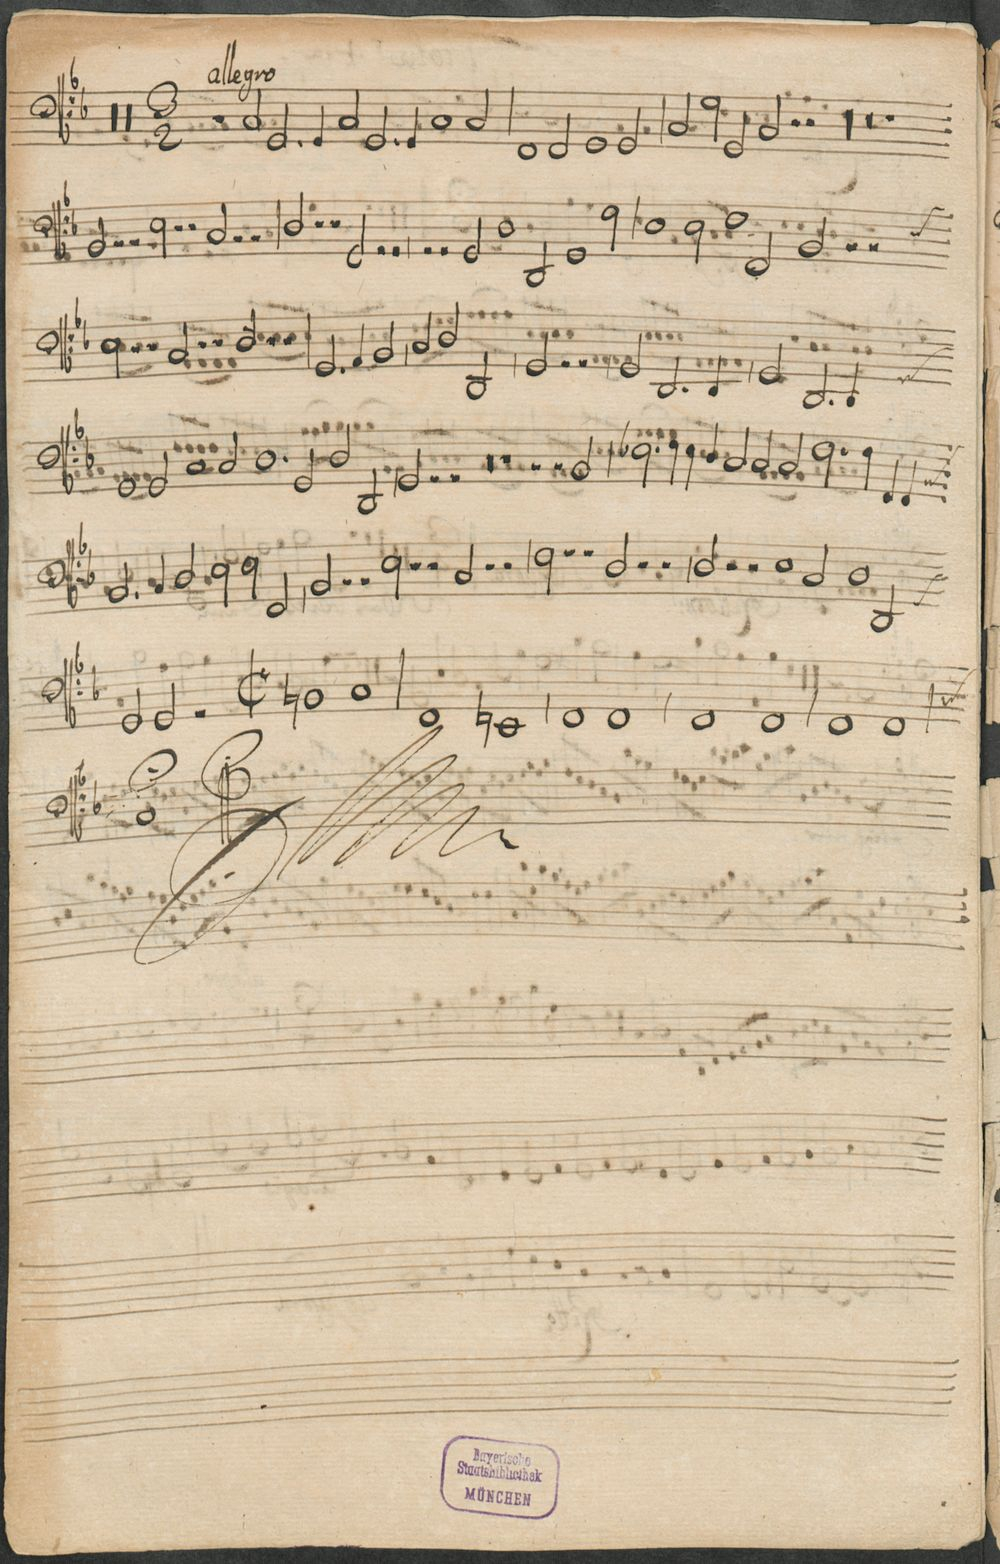 allegro
3
2
Bayerische
Staatsbibliothek
MÜNCHEN